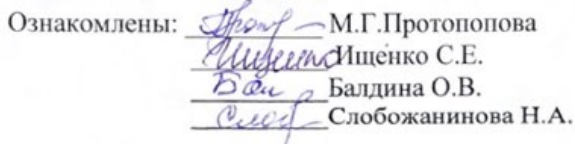 Ознакомлены: М.Г.Протопопова
Ищенко Ищенко С.Е.
Балдина О.В.
Слобожанинова Н.А.